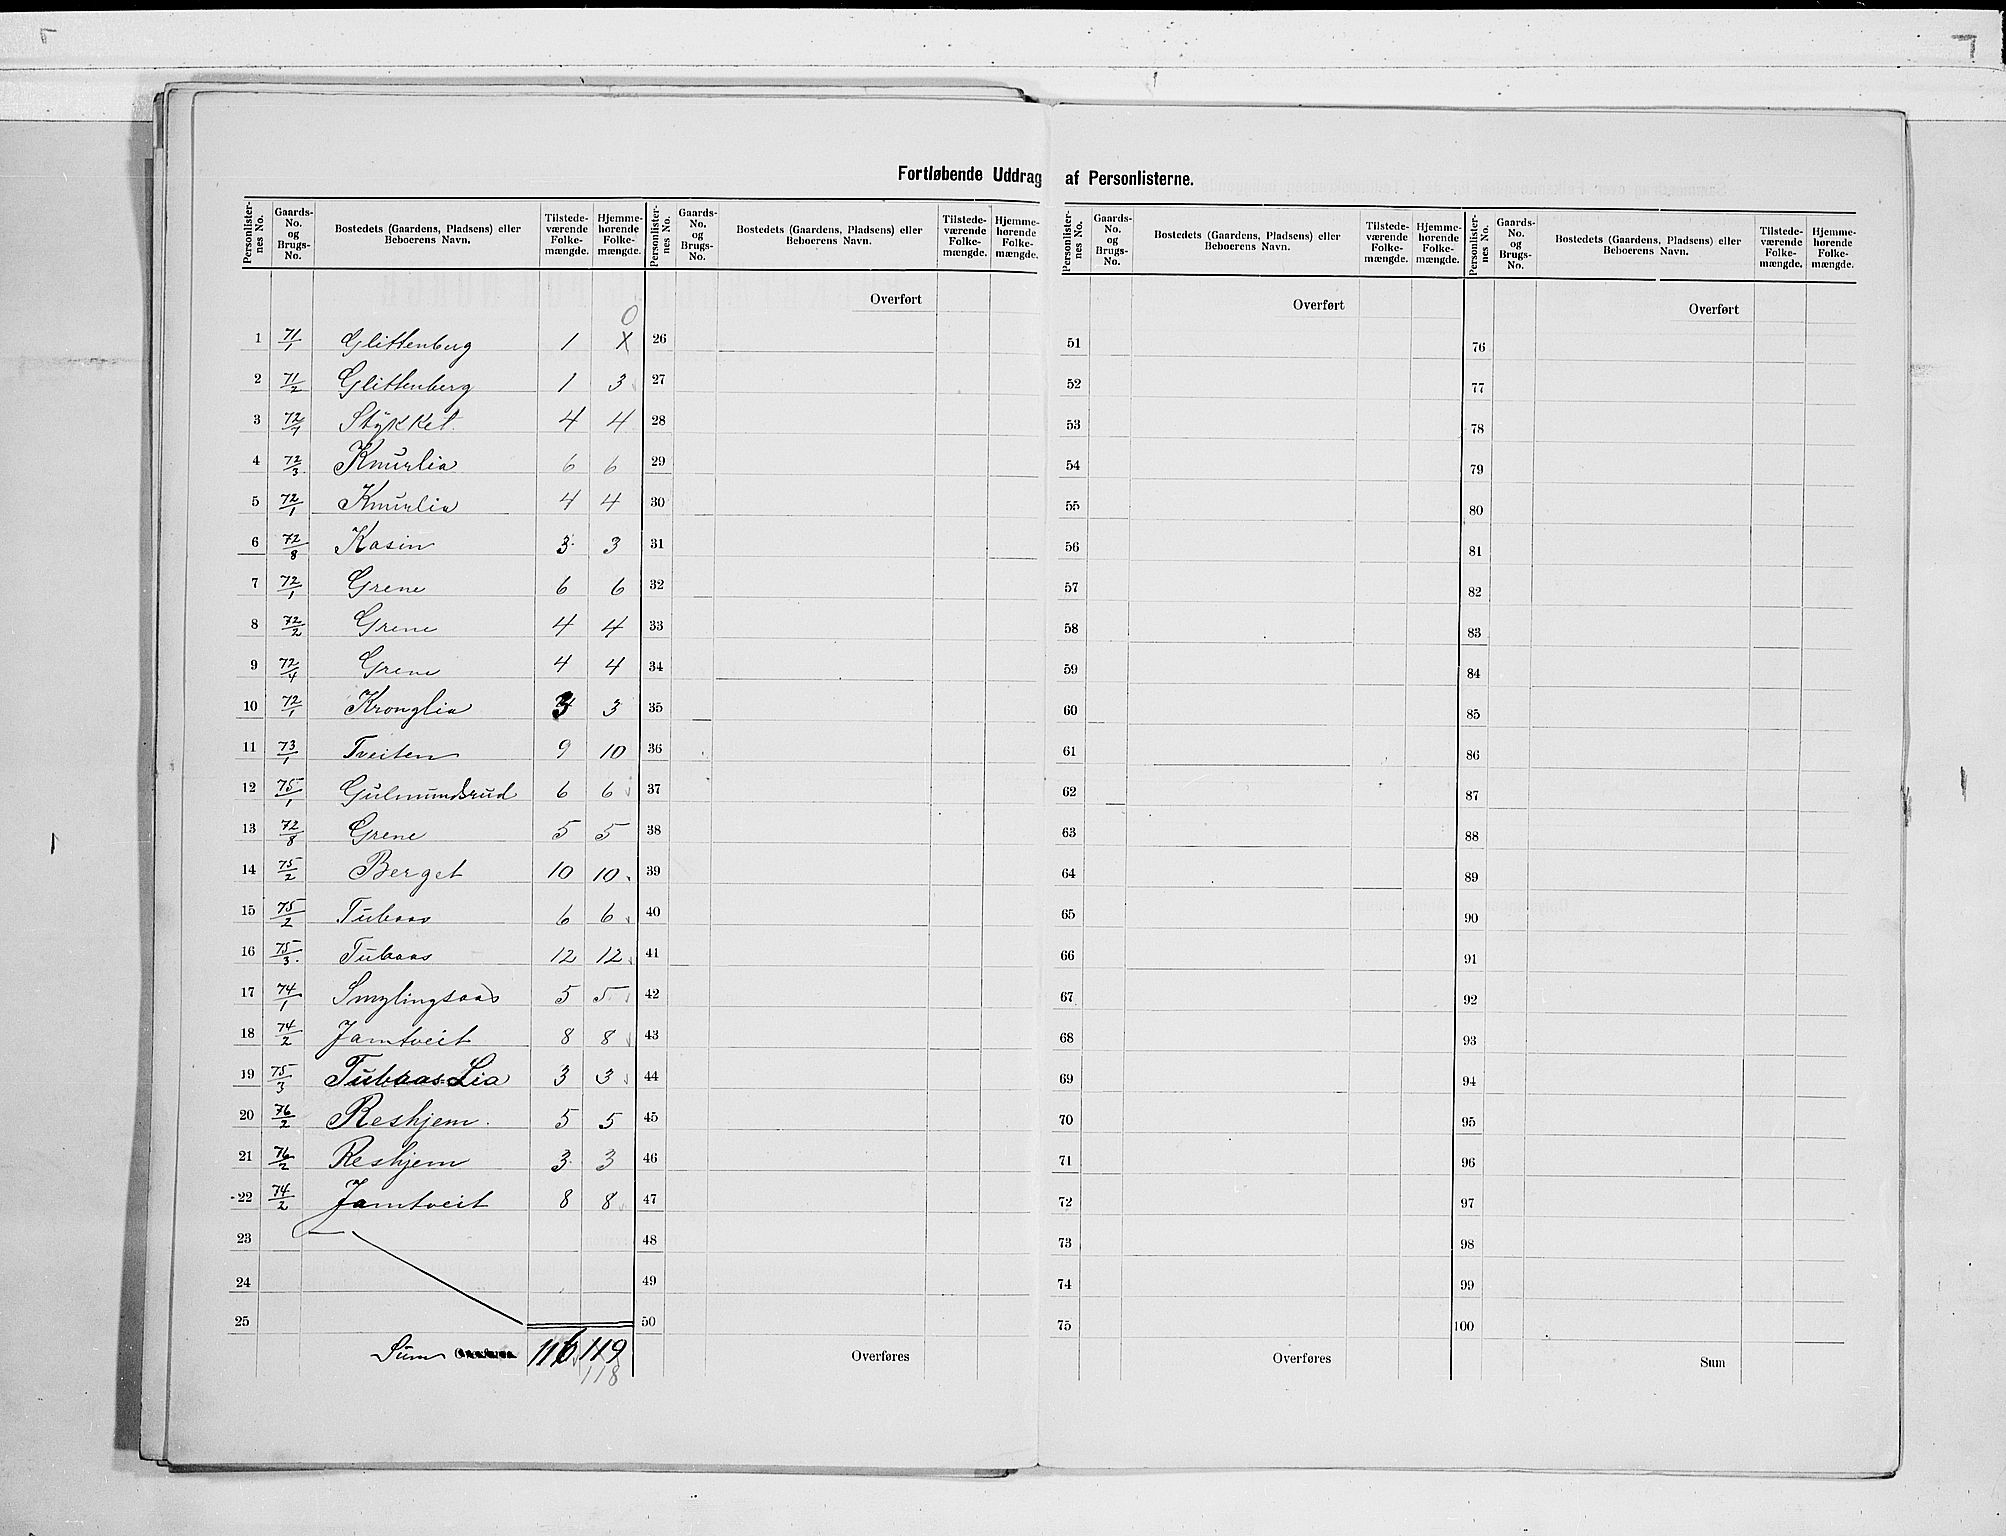 Fortløbende Uddrag af Personlisterne.
Personlisternes No. Gaards-No. og Brugs-No. Bostedets (Gaardens, Pladsens) eller Beboerens Navn. Tilstedeværende Folkemængde. Hjemmehørende Folkemængde.
0
1 71/1 Glittenberg 1 X
2 71/2 Glittenberg 1 3
3 72/7 Stykket 4 4
4 72/3 Knurlia 6 6
5 72/1 Knurlia 4 4
6 72/8 Kasin 3 3
7 72/1 Grene 6 6
8 72/2 Grene 4 4
9 72/4 Grene 4 4
10 72/1 Kronglia 3 3
11 73/1 Tveiten 9 10
12 75/1 Gulmundsrud 6 6
13 72/8 Grene 5 5
14 75/2 Berget 10 10
15 75/2 Tubaas 6 6
16 75/3 Tubaas 12 12
17 74/1 Smylingsaas 5 5
18 74/2 Jamtveit 8 8
19 75/3 Tubaas Lia 3 3
20 76/2 Reshjem 5 5
21 76/2 Reshjem 3 3
22 74/2 Jamtveit 8 8
23
24
25
Sum 116 119
118
Personlisternes No. Gaards-No. og Brugs-No. Bostedets (Gaardens, Pladsens) eller Beboerens Navn. Tilstedeværende Folkemængde. Hjemmehørende Folkemængde.
Overført
26
27
28
29
30
31
32
33
34
35
36
37
38
39
40
41
42
43
44
45
46
47
48
49
50
Overføres
Personlisternes No. Gaards-No. og Brugs-No. Bostedets (Gaardens, Pladsens) eller Beboerens Navn. Tilstedeværende Folkemængde. Hjemmehørende Folkemængde.
Overført
51
52
53
54
55
56
57
58
59
60
61
62
63
64
65
66
67
68
69
70
71
72
73
74
75
Overføres
Personlisternes No. Gaards-No. og Brugs-No. Bostedets (Gaardens, Pladsens) eller Beboerens Navn. Tilstedeværende Folkemængde. Hjemmehørende Folkemængde.
Overført
76
77
78
79
80
81
82
83
84
85
86
87
88
89
90
91
92
93
94
95
96
97
98
99
100
Sum